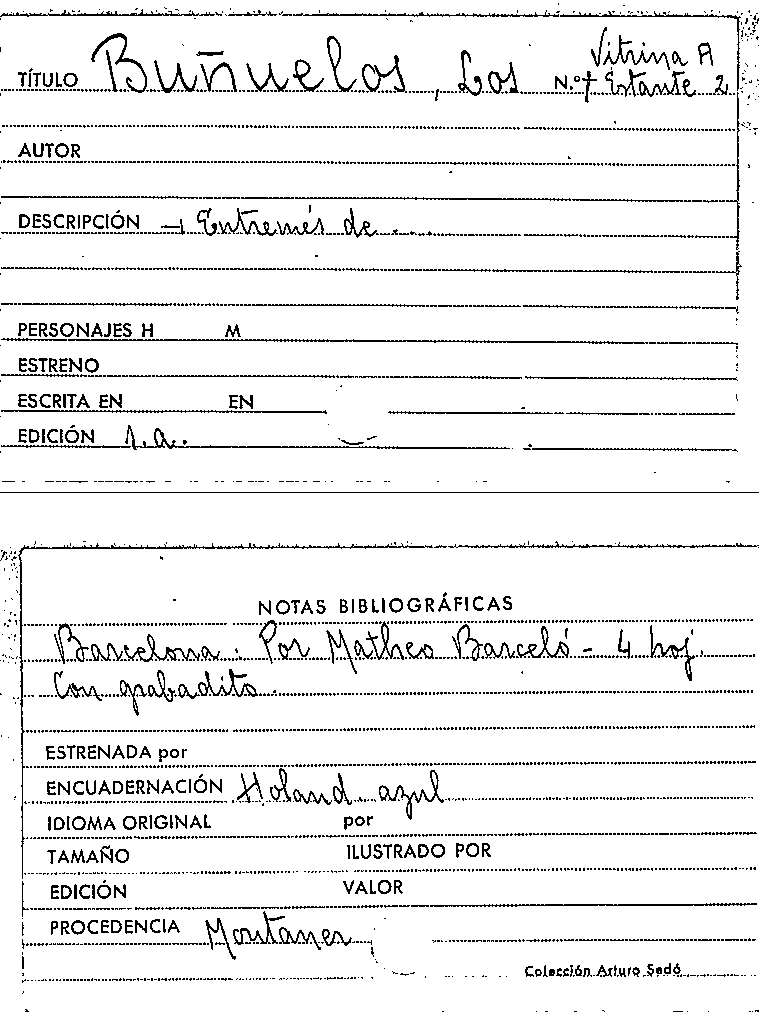 Vitrina A
TÍTULO Buñuelos, Los N.º+ Estante 2
AUTOR
DESCRIPCIÓN → Entremés de ....
PERSONAJES H M
ESTRENO
ESCRITA EN EN
EDICIÓN s.a.
NOTAS BIBLIOGRÁFICAS
Barcelona: Por Matheo Barceló - 4 hoj.
Con grabadito.
ESTRENADA por
ENCUADERNACIÓN Holand. azul
IDIOMA ORIGINAL por
TAMAÑO ILUSTRADO POR
EDICIÓN VALOR
PROCEDENCIA Montaner
Colección Arturo Sedó